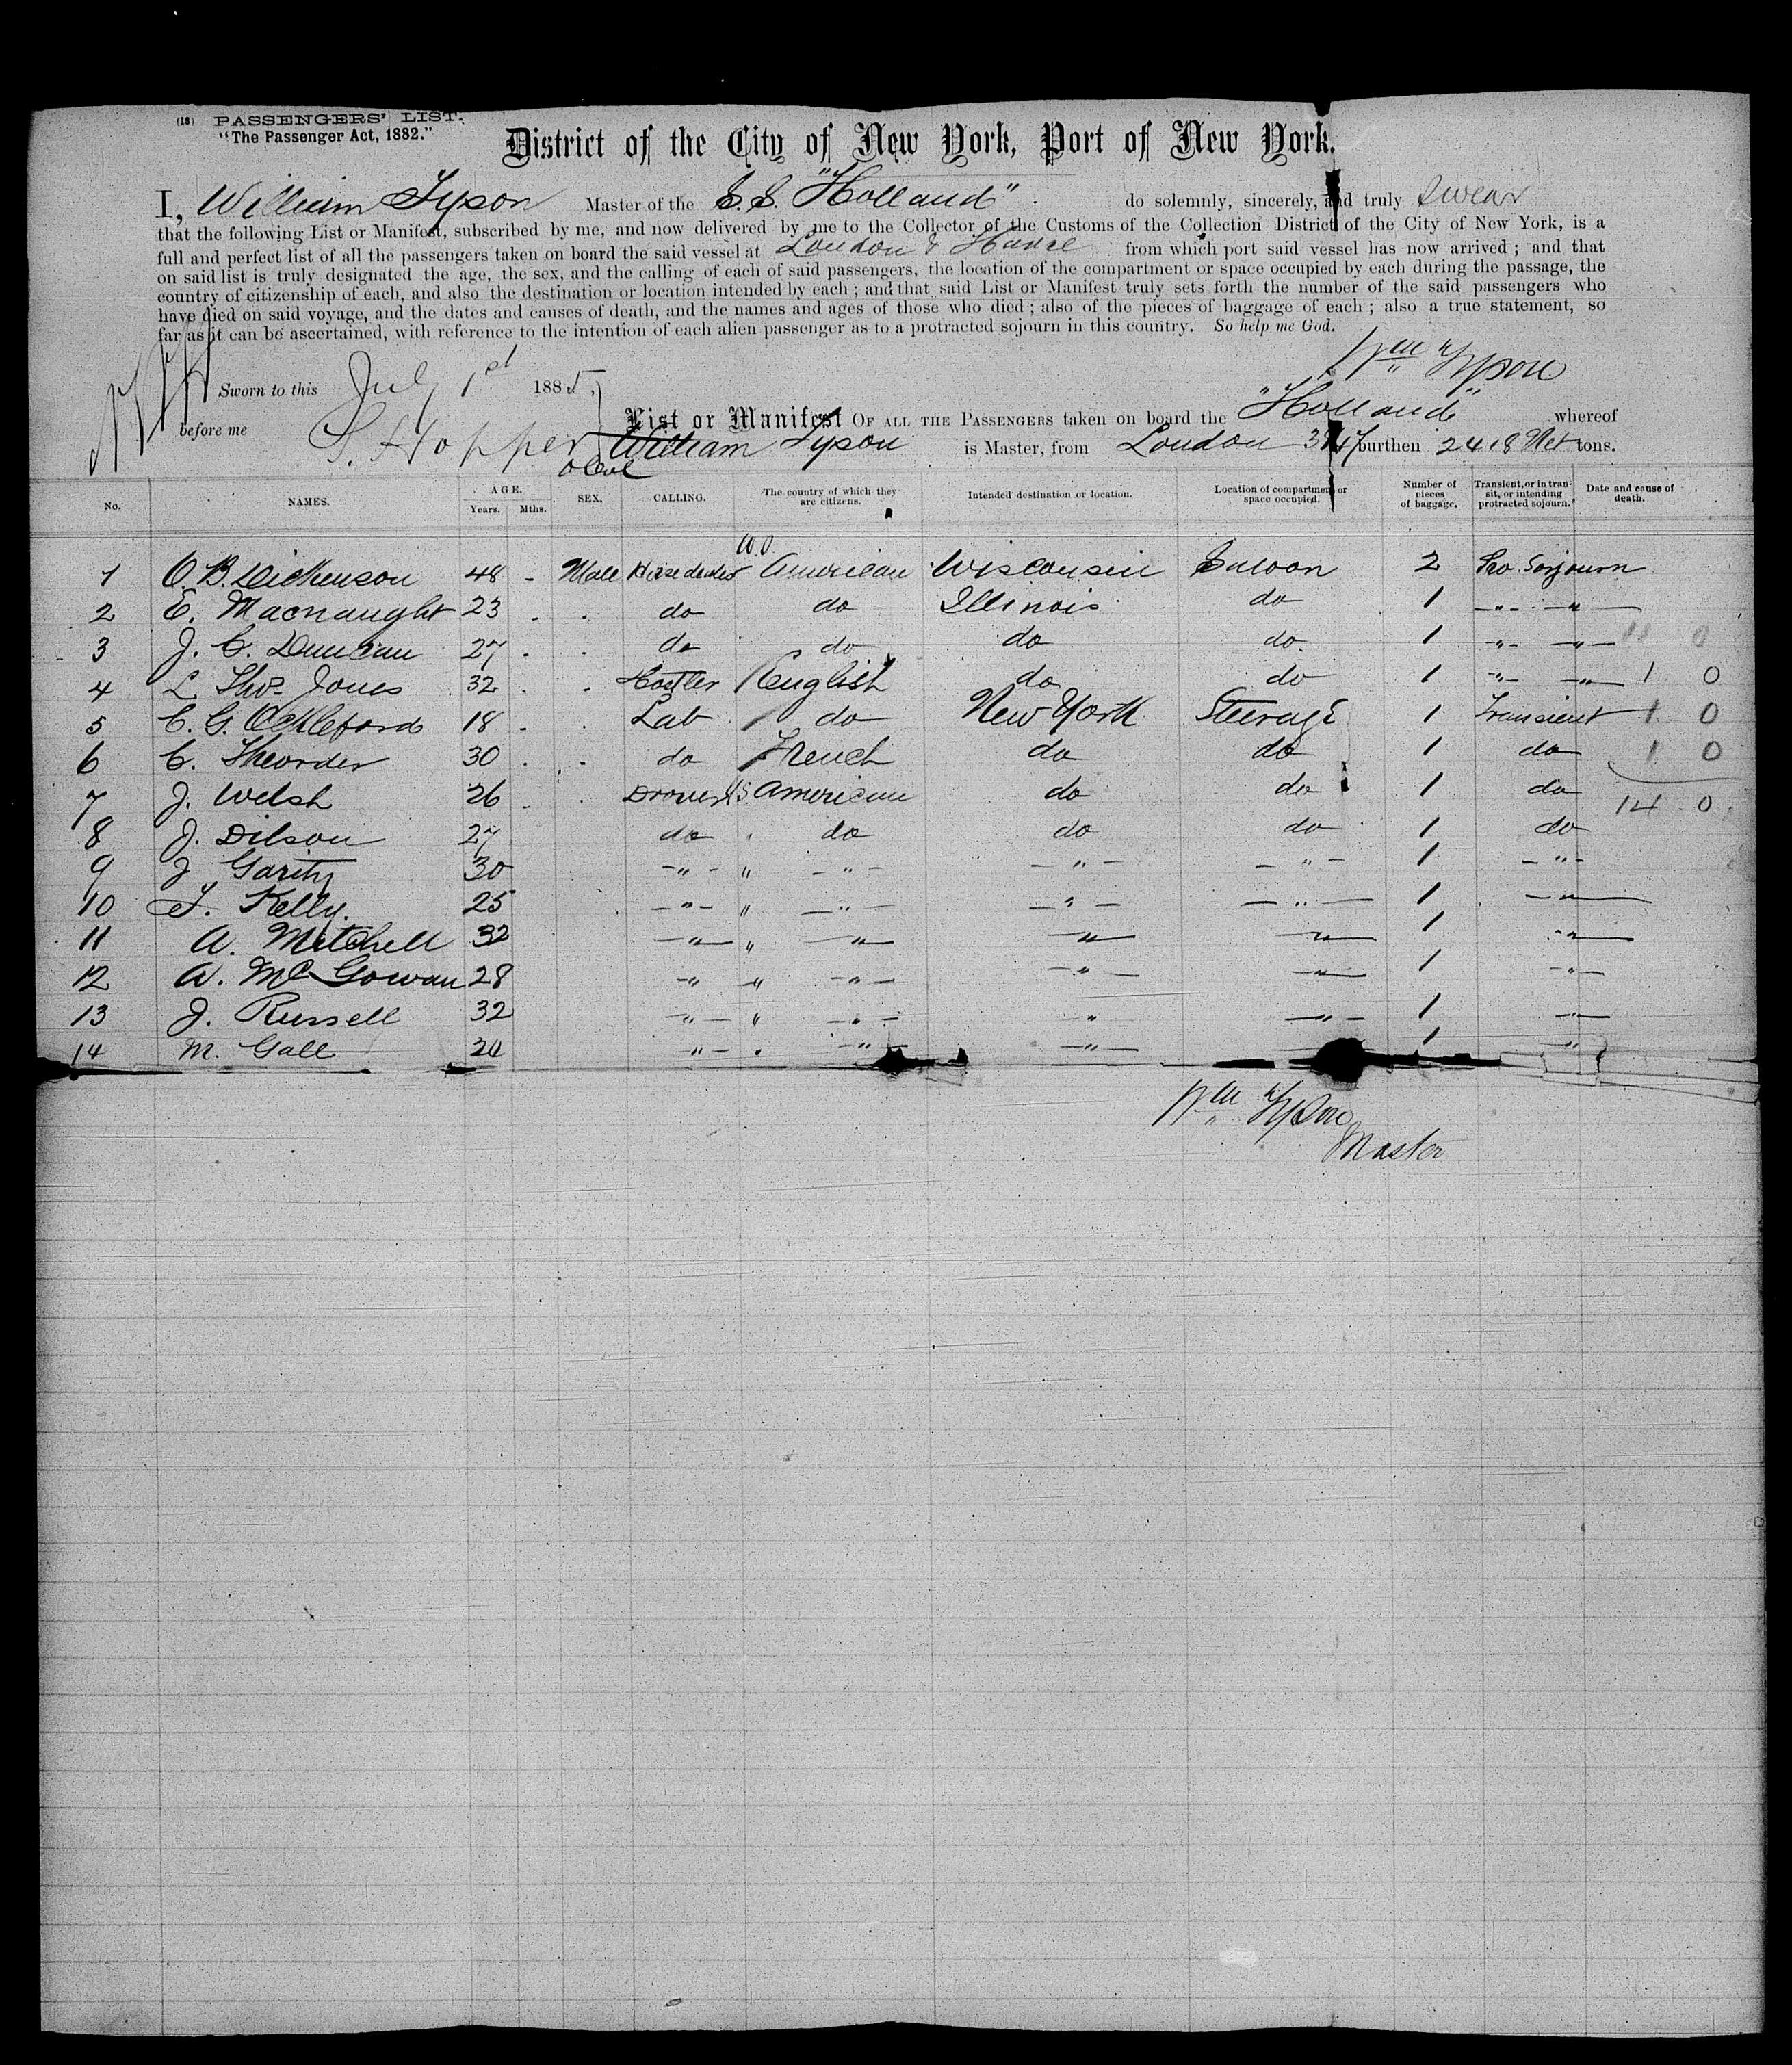 (18) PASSENGERS' LIST.
"The Passenger Act, 1882."
District of the City of New York, Port of New York.
I, William Tyson Master of the S.S. "Holland" do solemnly, sincerely, and truly Swear
that the following List or Manifest, subscribed by me, and now delivered by me to the Collector of the Customs of the Collection District of the City of New York, is a
full and perfect list of all the passengers taken on board the said vessel at London & Havre from which port said vessel has now arrived ; and that
on said list is truly designated the age, the sex, and the calling of each of said passengers, the location of the compartment or space occupied by each during the passage, the
country of citizenship of each, and also the destination or location intended by each ; and that said List or Manifest truly sets forth the number of the said passengers who
have died on said voyage, and the dates and causes of death, and the names and ages of those who died ; also of the pieces of baggage of each ; also a true statement, so
far as it can be ascertained, with reference to the intention of each alien passenger as to a protracted sojourn in this country. So help me God.
Wm Tyson
Sworn to this July 1st 1885,
List or Manifest OF ALL THE PASSENGERS taken on board the "Holland" whereof
before me S. Hopper William Tyson is Master, from London burthen 2418 Net tons.
No. NAMES. AGE. Years. Mths. SEX. CALLING. The country of which they are citizens. Intended destination or location. Location of compartment or space occupied. Number of pieces of baggage. Transient, or in transit, or intending protracted sojourn. Date and cause of death.
1 O. B. Dickenson 48 - Male Horse dealer American Wisconsin Saloon 2 Pro. Sojourn
2 E. Macnaught 23 - - do do Illinois do 1 -"- -"-
3 J. C. Duncan 27 - - do do do do 1 -"- -"- 11 0
4 L Thos. Jones 32 - - Hostler English do do 1 -"- -"- 1 0
5 C. G. 18 - Lab do New York Steerage 1 Transient 1 0
6 C. 30 - - do French do do 1 do 1 0
7 J. Welsh 26 - - Drover US American do do 1 do 14 0
8 J. Dilson 27 do " do do do 1 do
9 J Garity 30 -"- " -"- -"- -"- 1 -"-
10 T. Kelly. 25 -"- " -"- -"- -"- 1 -"-
11 A. Mitchell 32 -"- " -"- -"- -"- 1 -"-
12 A. McGowan 28 -"- " -"- -"- -"- 1 -"-
13 J. Russell 32 -"- " -"- " -"- 1 -"-
14 M. Gall -"- " -"- -"- 1 -"-
Wm Tyson
Master